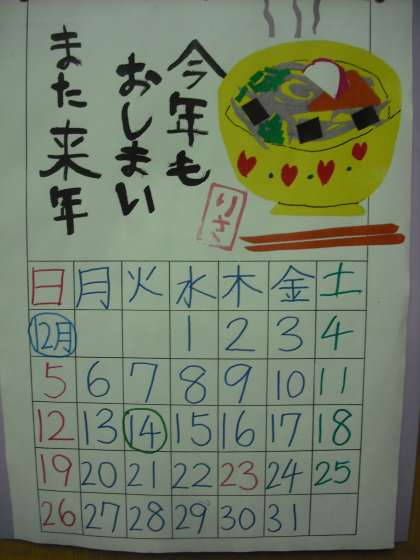 今年も
おしまい
また来年
りさ
日 月 火 水 木 金 土
12月 1 2 3 4
5 6 7 8 9 10 11
12 13 14 15 16 17 18
19 20 21 22 23 24 25
26 27 28 29 30 31